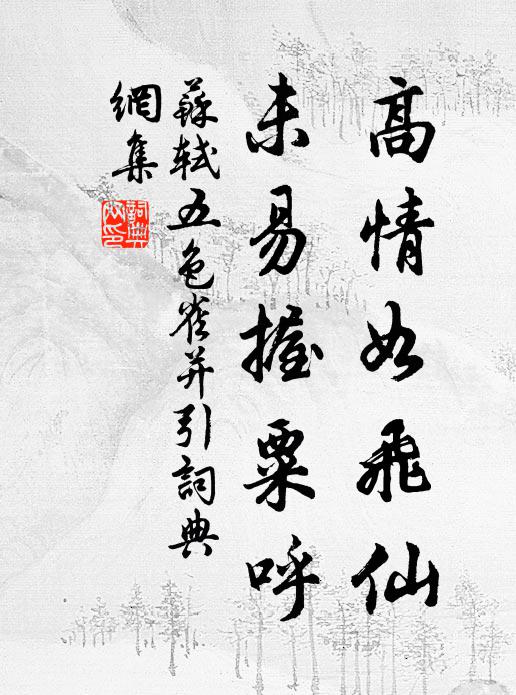 高情如飛仙
未易握粟呼
蘇軾五色雀并引詞典
網集